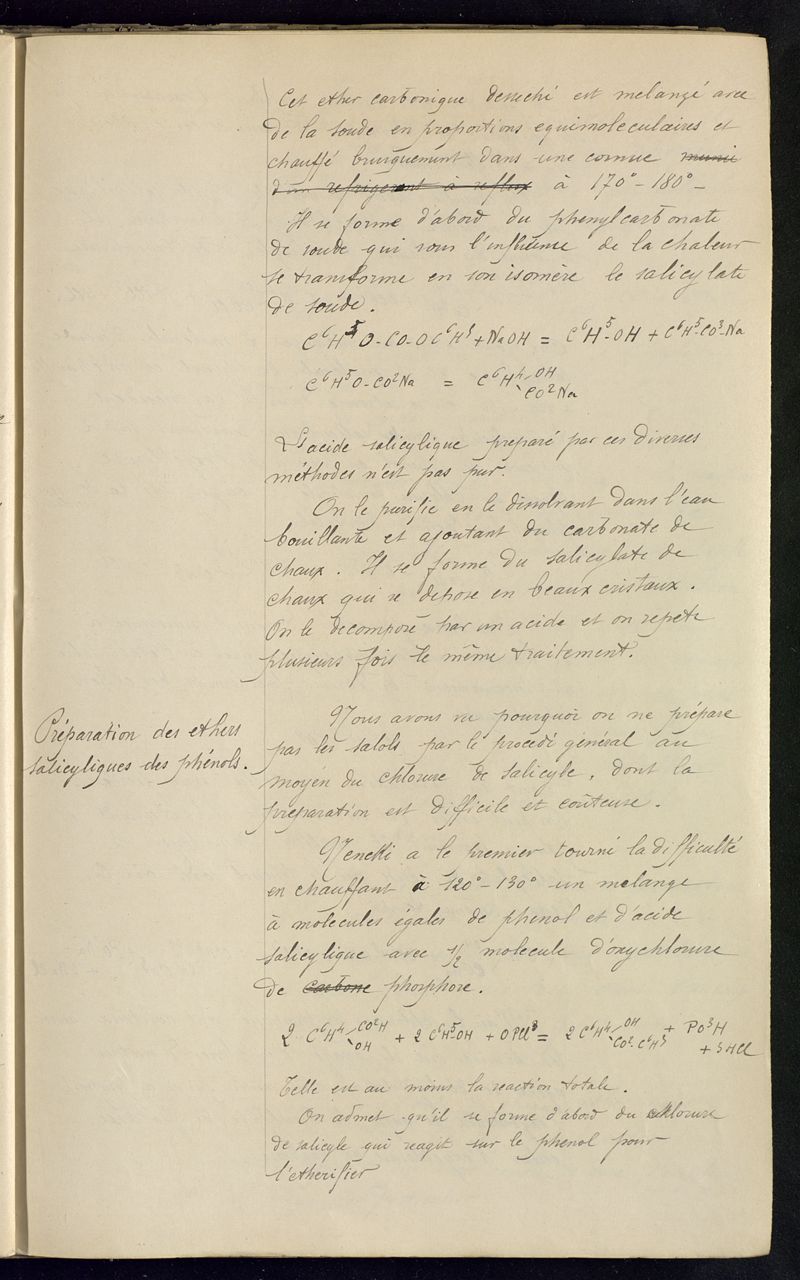 Cet ether carbonique desseché est melangé avec
de la soude en proportions equimoleculaires et
chauffé brusquement dans une cornue munie
d'un refrigerant à reflux à 170° - 180° -
Il se forme d'abord du phenylcarbonate
de soude qui sous l'influence de la chaleur
se transforme en son isomère le salicylate
de soude.
C⁶H⁵O-CO-OC⁶H⁵ + NaOH = C⁶H⁵-OH + C⁶H⁵-CO³-Na
C⁶H⁵O-CO²Na = C⁶H⁴ OH
CO²Na
L'acide salicylique preparé par ces diverses
méthodes n'est pas pur.
On le purifie en le dissolvant dans l'eau
bouillante et ajoutant du carbonate de
chaux. Il se forme du salicylate de
chaux qui se depose en beaux cristaux.
On le decompose par un acide et on repete
plusieurs fois le même traitement.
Préparation des ethers
salicyliques des phénols.
Nous avons vu pourquoi on ne prépare
pas les salols par le procédé général au
moyen du chlorure de salicyle, dont la
preparation est difficile et coûteuse.
Nencki a le premier tourné la difficulté
en chauffant à 120° - 130° un melange
à molecules égales de phenol et d'acide
salicylique avec ½ molecule d'oxychlorure
de carbone phosphore.
2 C⁶H⁴ CO²H
OH + 2 C⁶H⁵-OH + OPCl³ = 2 C⁶H⁴ OH
CO²-C⁶H⁵ + PO³H
+ 3HCl
Telle est au moins la reaction totale.
On admet qu'il se forme d'abord du chlorure
de salicyle qui reagit sur le phenol pour
l'etherifier